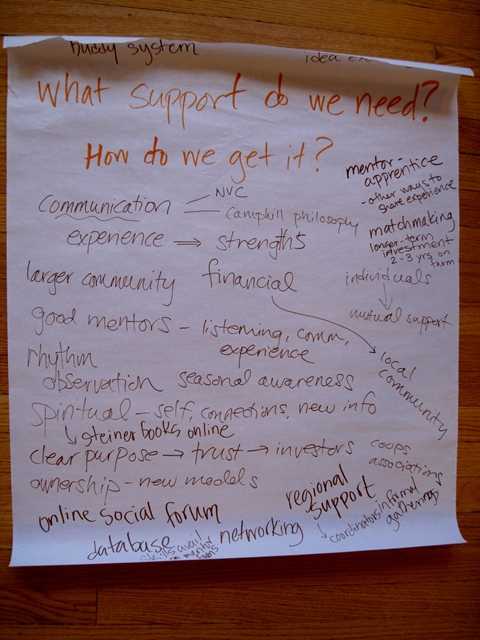 buddy system
idea
What support do we need?
How do we get it?
mentor-
apprentice
-other ways to
share experience
communication
NVC
Camphill philosophy
matchmaking
longer-term
investment
2-3 yrs on
farm
experience ⇒ strengths
larger community
financial
individuals
mutual support
good mentors - listening, comm,
experience
local
community
rhythm
observation
seasonal awareness
spiritual - self, connections, new info
↳ steiner books online
clear purpose → trust → investors
coops
associations
ownership - new models
regional
support
online social forum
coordinators informal
gatherings
networking
database
skills avail